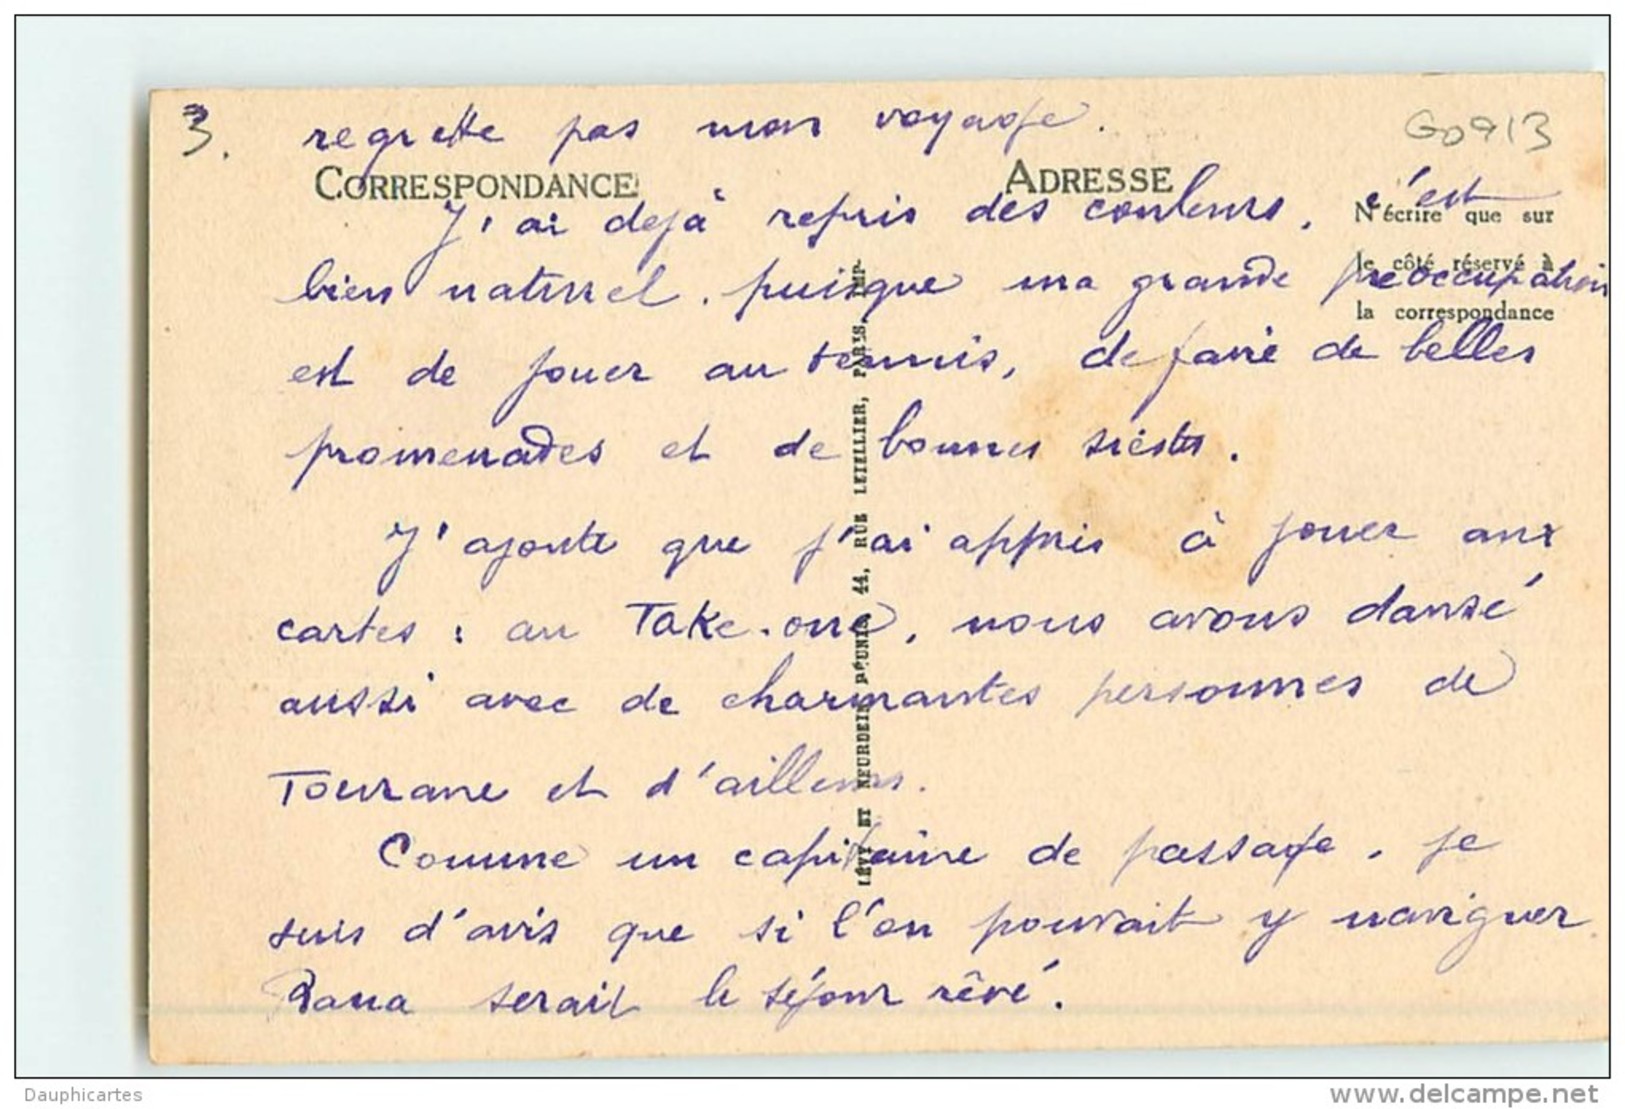 3. regrette pas mon voyage. G0913
CORRESPONDANCE
ADRESSE
J'ai dejà repris des couleurs, c'est
N'écrire que sur
le côté réservé à
la correspondance
bien naturel, puisque ma grande préoccupation
est de jouer au tennis, de faire de belles
promenades et de bonnes siestes.
J'ajoute que j'ai appris à jouer aux
cartes : au Take-one, nous avons dansé
aussi avec de charmantes personnes de
Tourane et d'ailleurs.
Comme un capitaine de passage, je
suis d'avis que si l'on pouvait y naviguer
Bana serait le séjour rêvé.
LÉVY ET NEURDEIN RÉUNIS, 44, RUE LETELLIER, PARIS, IMP.
Dauphicartes
www.delcampe.net